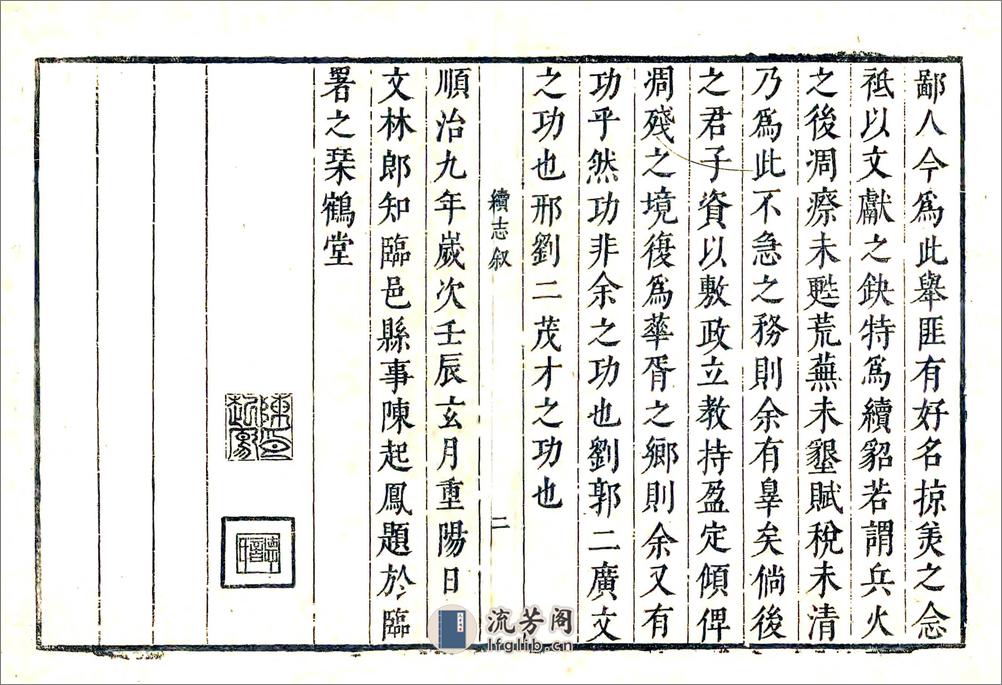 鄙人今爲此舉匪有好名掠美之念
祗以文獻之缺特爲續貂若謂兵火
之後凋瘵未甦荒蕪未墾賦稅未清
乃爲此不急之務則余有辠矣倘後
之君子資以敷政立教持盈定傾俾
凋殘之境復爲華胥之鄉則余又有
功乎然功非余之功也劉郭二廣文
之功也邢劉二茂才之功也
續志叙
二
順治九年歲次壬辰玄月重陽日
文林郎知臨邑縣事陳起鳳題於臨
署之琹鶴堂
陳起鳳印
流芳阁
lfglib.cn